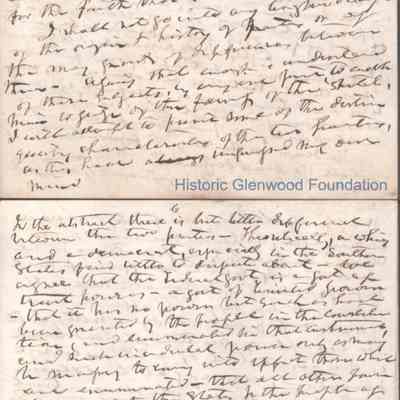 for the faith that
I shall not go into any
of the origin & history of parties or of
the many grounds of difference between
them — Upon that enough is understood
of these subjects, by any one prone to enable
him to judge of the force of the sketch,
I will attempt to point some of the distin
guishing characteristics of the two parties,
as they have impressed my own
mind
Historic Glenwood Foundation
In the abstract there is but little difference
between the two parties — Theoretically, a whig
and a democrat, especially in the Southern
States find little to dispute about — both
agree that the Federal govt is a govt of
trust powers — a govt of limited powers
— that it has no powers but such as have
been granted by the people in the constitu
tion, and enumerated in that instrument,
and such incidental powers only as may
be necessary to carry into effect those which
are enumerated — that all other powers
the States or the people